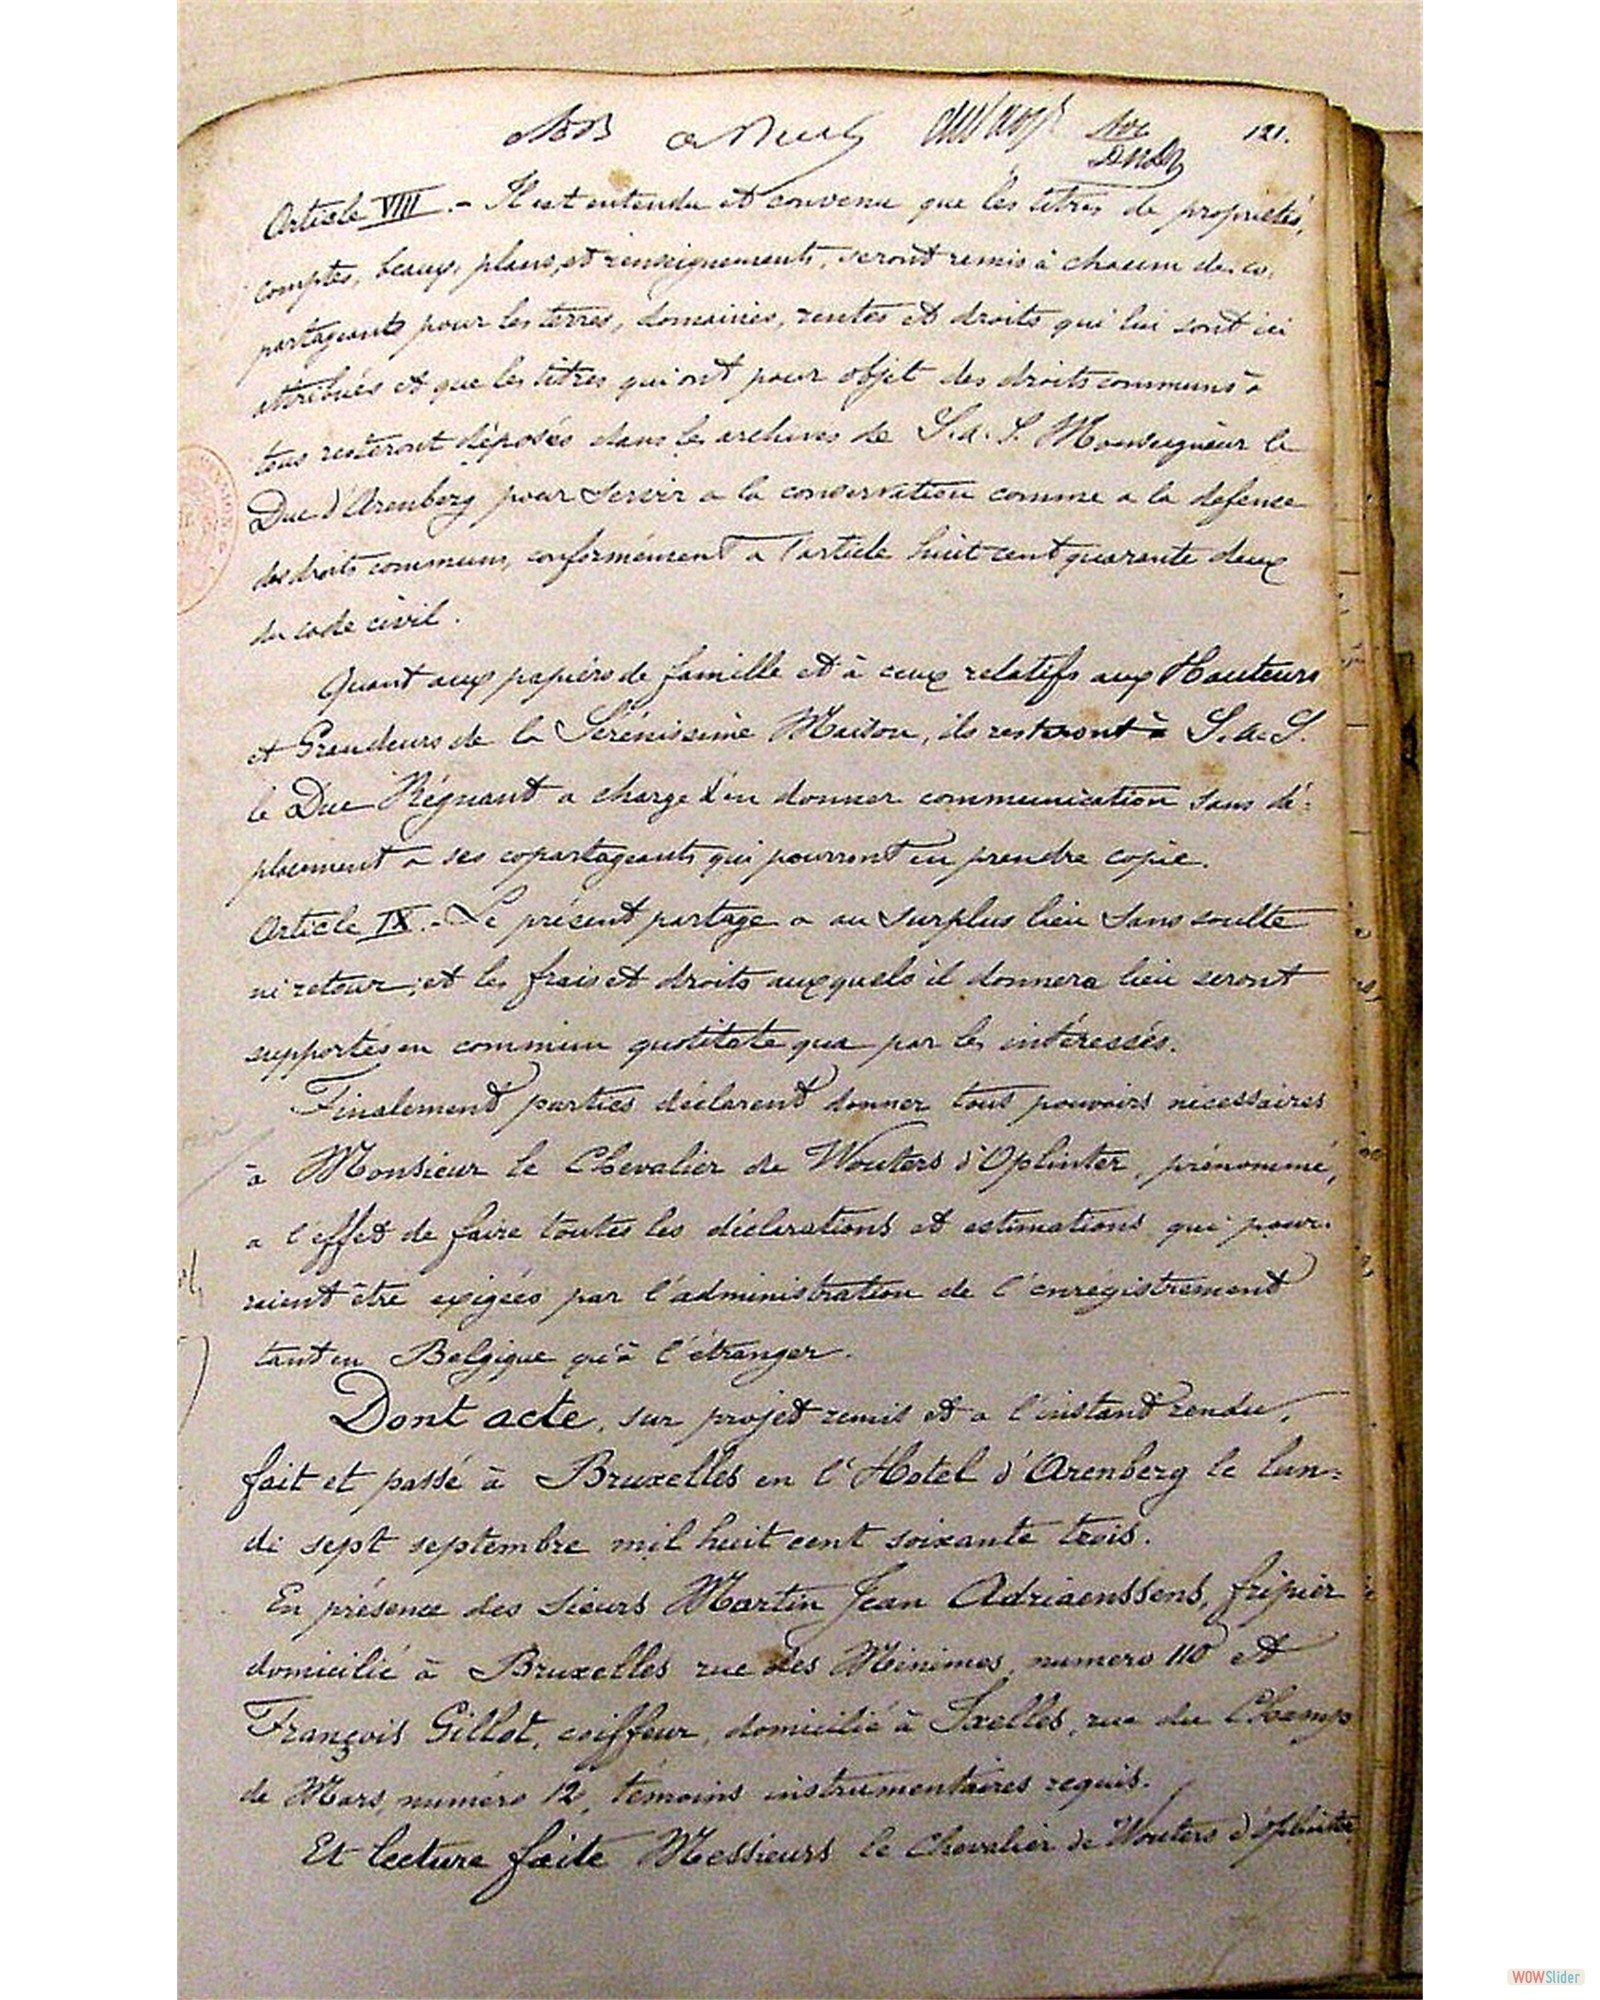 121.
Article VIII. - Il est entendu et convenu que les titres de propriétés,
comptes, beaux, plans, et renseignements, seront remis à chacun des co.
partageants pour les terres, domaines, rentes et droits qui lui sont ici
attribués et que les titres qui ont pour objet des droits communs à
tous resteront déposés dans les archives de S.A.S. Monseigneur le
Duc d'Arenberg pour servir a la conservation comme a la defense
des droits communs, conformément a l'article huit cent quarante deux
du code civil.
Quant aux papiers de famille et à ceux relatifs aux Hauteurs
et Grandeurs de la Sérénissime Maison, ils resteront à S.A.S.
le Duc Régnant a charge d'en donner communication sans dé=
placement a ses copartageants qui pourront en prendre copie.
Article IX. - Le présent partage a au surplus lieu sans soulte
ni retour; et les frais et droits auxquels il donnera lieu seront
supportés en commun quotitate qua par les intéressés.
Finalement parties déclarent donner tous pouvoirs nécessaires
à Monsieur le Chevalier de Wouters d'Oplinter, prénommé,
a l'effet de faire toutes les déclarations et estimations qui pour.
raient être exigées par l'administration de l'enrégistrement
tant en Belgique qu'à l'étranger.
Dont acte, sur projet remis et a l'instant rendu,
fait et passé à Bruxelles en l'Hotel d'Arenberg le lun=
di sept septembre mil huit cent soixante trois.
En présence des sieurs Martin Jean Adriaenssens, fripier
domicilié à Bruxelles rue des Minimes, numero 110 et
François Gillot, coiffeur, domicilié à Ixelles, rue du Champ
de Mars, numéro 12, témoins instrumentaires requis.
Et lecture faite Messieurs le Chevalier de Wouters d'Oplinter
WOWSlider